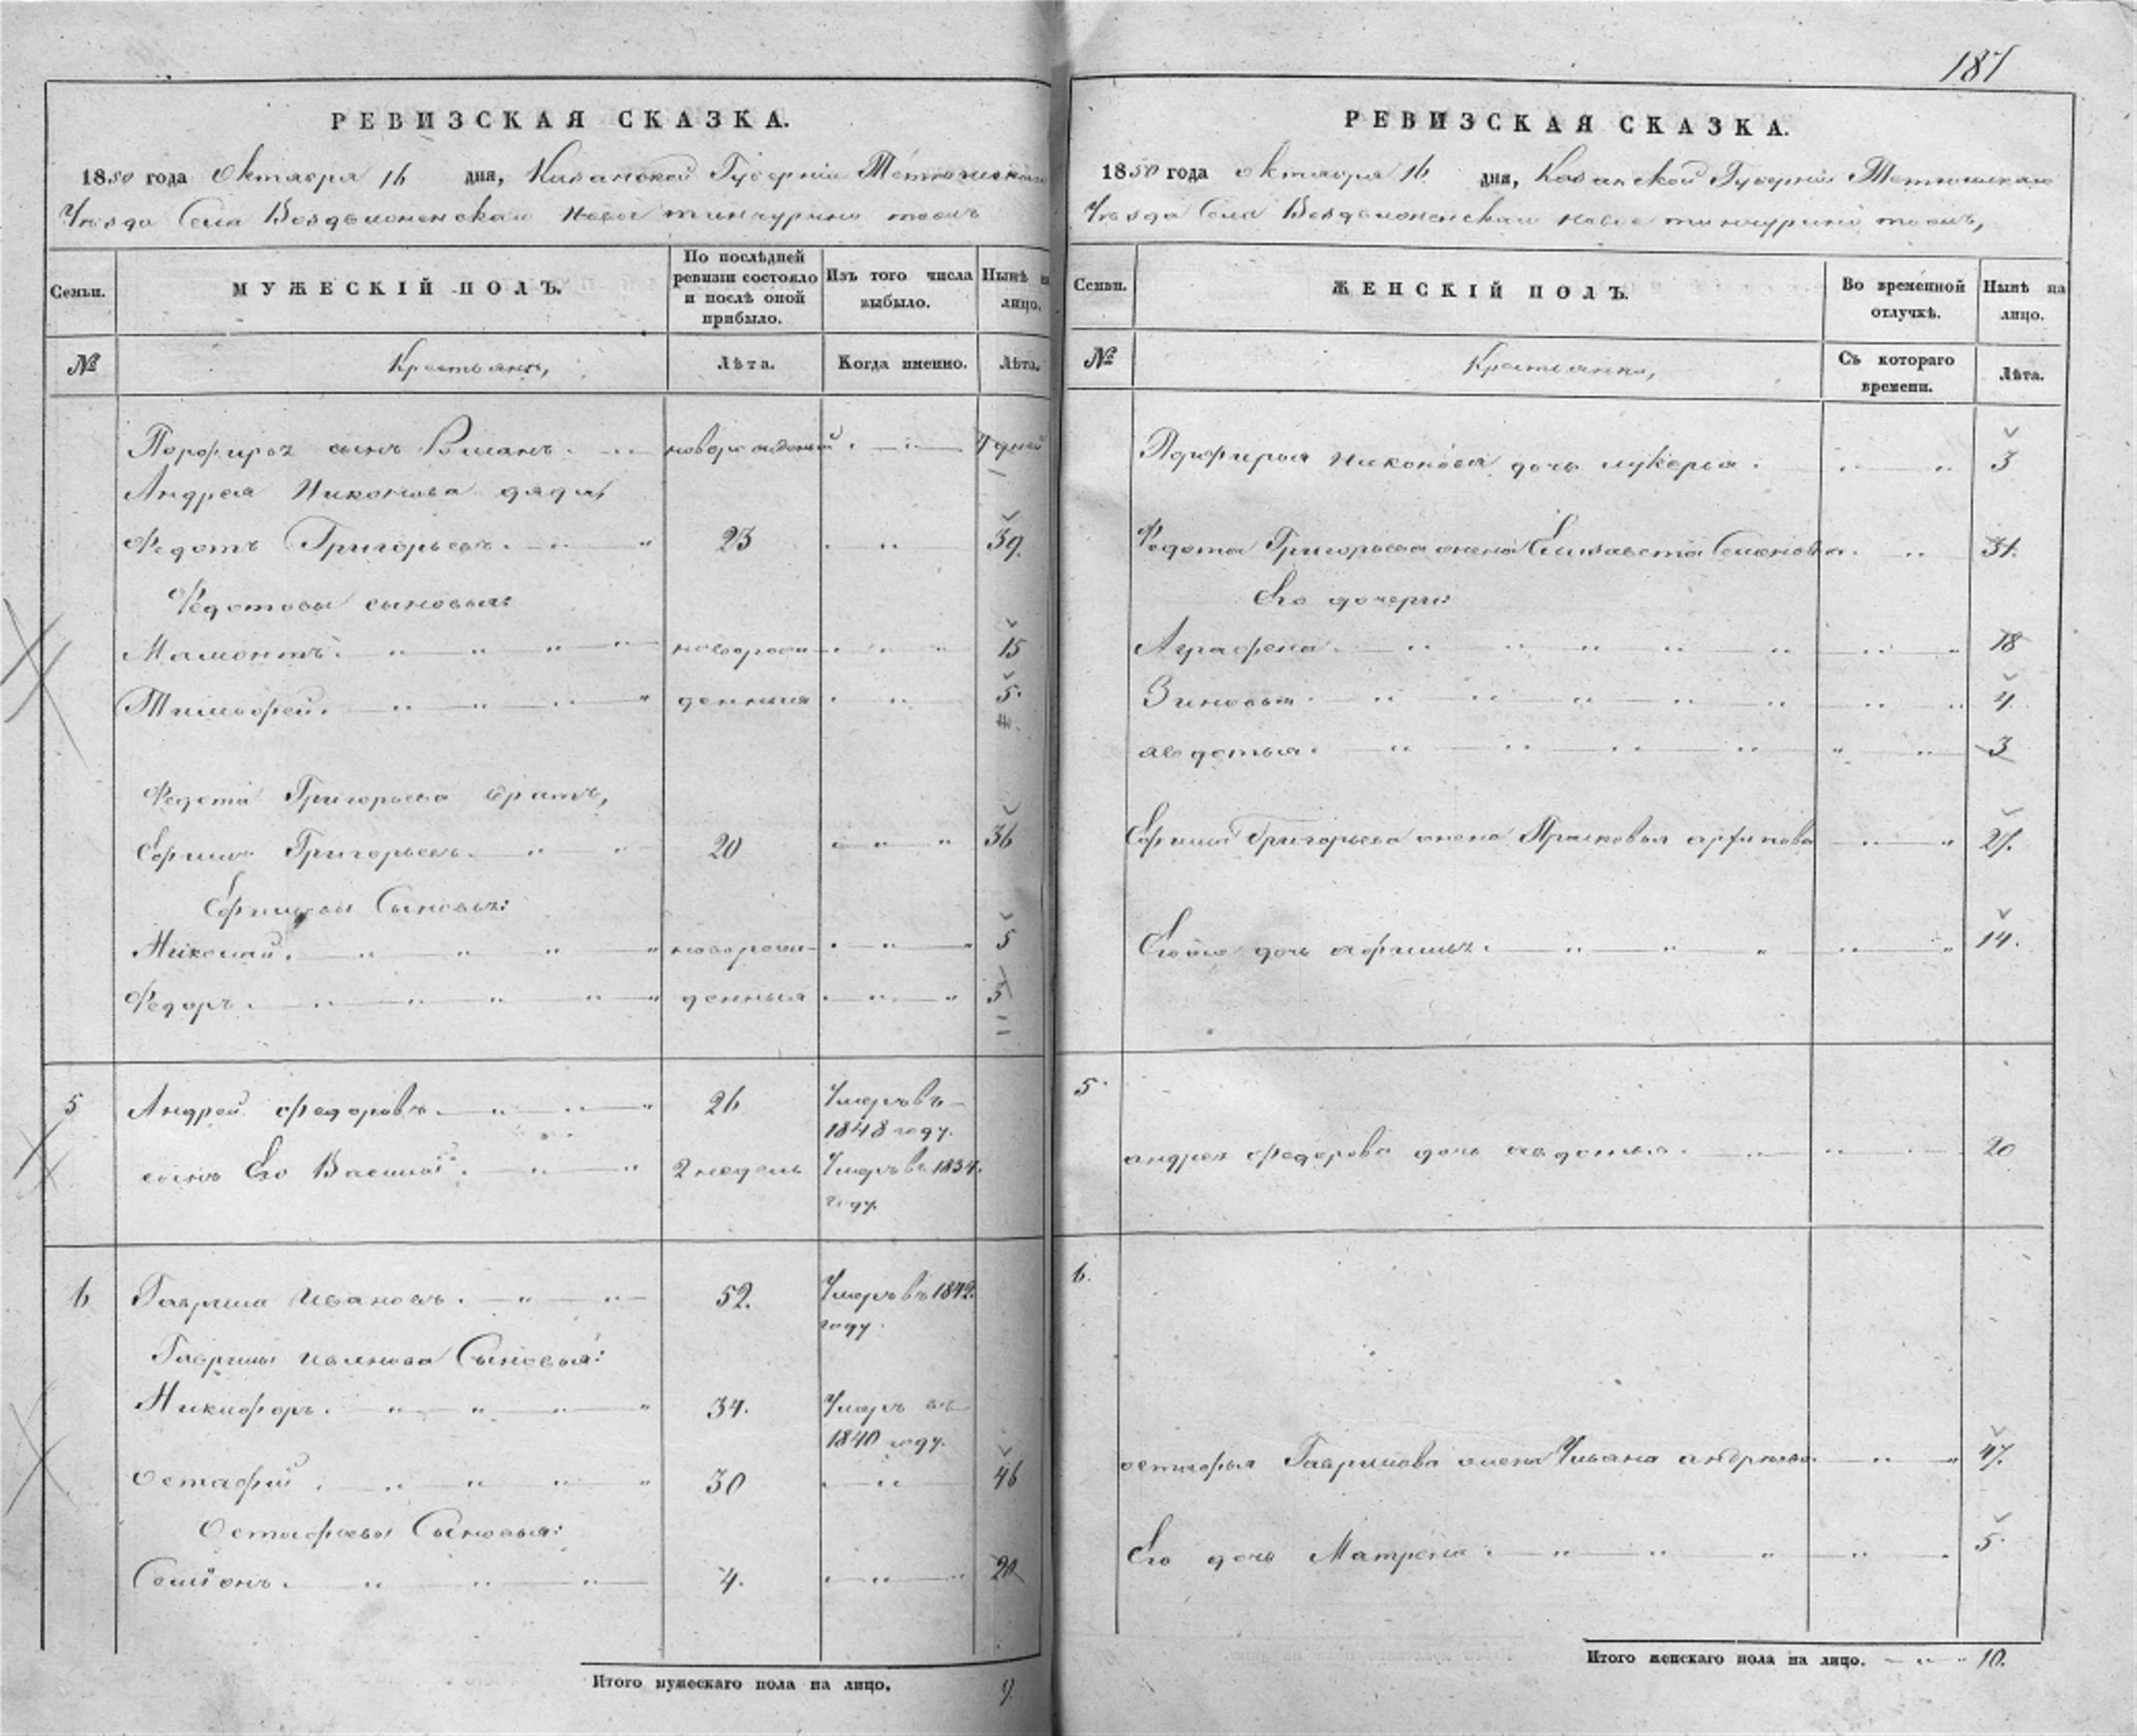 187
РЕВИЗСКАЯ СКАЗКА.
1850 года Октября 16 дня, Казанской Губерніи Тетюшскаго
Уѣзда Села Воздвиженскаго Новое тинчурино тожъ
Семьи.
МУЖЕСКІЙ ПОЛЪ.
По послѣдней ревизіи состояло и послѣ оной прибыло.
Изъ того числа выбыло.
Нынѣ на лицо.
№
Крестьяне,
Лѣта.
Когда именно.
Лѣта.
Порфиръ сынъ новорожденный 7 дней
Андрея Никонова дядя,
Федотъ Григорьевъ. 23 39.
Федотовы сыновья:
Мамонтъ. новорож- 15
Тимофей. денныя 5.
Федота Григорьева братъ,
Ефимъ Григорьевъ. 20 36
Ефимовы Сыновья:
Николай. новорож- 5
Федоръ. денныя 3
5 Андрей Федоровъ. 26 Умеръ въ
1848 году.
сынъ Его Василій. 2 недель Умеръ въ 1834.
году.
6 Гаврила Ивановъ. 52. Умеръ въ 1842.
году.
Гаврилы Иванова Сыновья:
Никифоръ. 34. Умеръ въ
1840 году.
Остафий. 30 46
Остафьевы Сыновья:
Семіонъ. 4. 20
Итого мужескаго пола на лицо. 9.
РЕВИЗСКАЯ СКАЗКА.
1850 года октября 16 дня, Казанской Губерніи Тетюшскаго
Уѣзда Села Воздвиженскаго новое тинчурино тожъ,
Семьи.
ЖЕНСКІЙ ПОЛЪ.
Во временной отлучкѣ.
Нынѣ на лицо.
№
Крестьянки,
Съ котораго времени.
Лѣта.
Порфирья Никонова дочь лукерья. 3
Федота Григорьева жена Елизавета Семенова. 31.
Его дочери:
Аграфена. 18
Зиновья. 4.
авдотья. 3
Ефима Григорьева жена Прасковья 27.
дочь афимья. 14.
5
андрея Федорова дочь авдотья. 20
6.
остафья Гаврилова жена Ульяна андреева. 47.
Его дочь Матрена. 5.
Итого женскаго пола на лицо. 10.